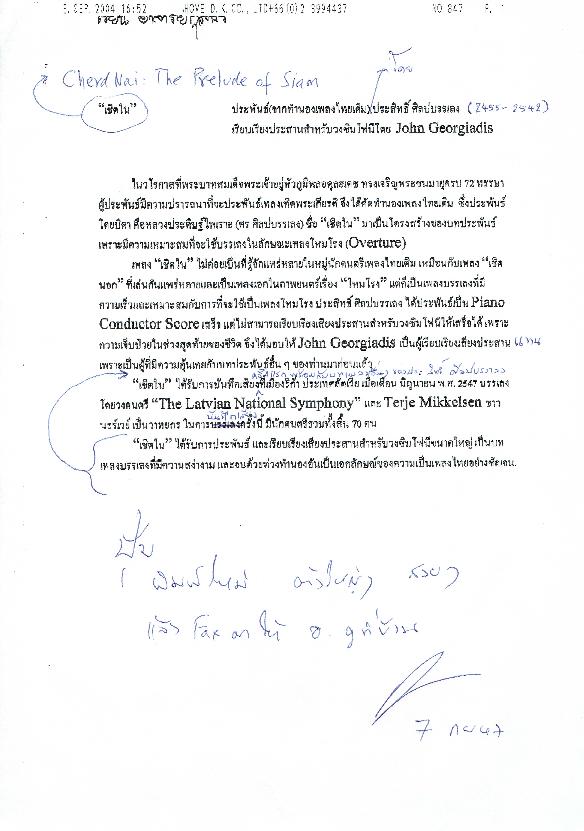 SEP. 2004 16:52 HOVE D. K. CO., LTD+66(0)2 3994437 NO. 847 P. 1
เรียน อาจารย์
Cherd Nai: The Prelude of Siam
โดย
"เชิดใน" ประพันธ์(จากทำนองเพลงไทยเดิม)ประสิทธิ์ ศิลปบรรเลง (2455-2542)
เรียบเรียงประสานสำหรับวงซิมโฟนีโดย John Georgiadis
ในวโรกาสที่พระบาทสมเด็จพระเจ้าอยู่หัวภูมิพลอดุลยเดช ทรงเจริญพระชนมายุครบ 72 พรรษา
ผู้ประพันธ์มีความปรารถนาที่จะประพันธ์เพลงเทิดพระเกียรติ จึงได้คัดทำนองเพลงไทยเดิม ซึ่งประพันธ์
โดยบิดา คือหลวงประดิษฐ์ไพเราะ (ศร ศิลปบรรเลง) ชื่อ "เชิดใน" มาเป็นโครงสร้างของบทประพันธ์
เพราะมีความเหมาะสมที่จะใช้บรรเลงในลักษณะเพลงโหมโรง (Overture)
เพลง "เชิดใน" ไม่ค่อยเป็นที่รู้จักแพร่หลายในหมู่นักดนตรีเพลงไทยเดิม เหมือนกับเพลง "เชิด
นอก" ที่เล่นกันแพร่หลายและเป็นเพลงเอกในภาพยนตร์เรื่อง "โหมโรง" แต่ก็เป็นเพลงบรรเลงที่มี
ความเร็วและเหมาะสมกับการที่จะใช้เป็นเพลงโหมโรง ประสิทธิ์ ศิลปบรรเลง ได้ประพันธ์เป็น Piano
Conductor Score เสร็จ แต่ไม่สามารถเรียบเรียงเสียงประสานสำหรับวงซิมโฟนีให้เสร็จได้ เพราะ
ความเจ็บป่วยในช่วงสุดท้ายของชีวิต จึงได้มอบให้ John Georgiadis เป็นผู้เรียบเรียงเสียงประสาน แทน
เพราะเป็นผู้ที่มีความคุ้นเคยกับบทประพันธ์อื่น ๆ ของท่านมาก่อนแล้ว
"เชิดใน" ได้รับการบันทึกเสียงที่เมืองริก้า ประเทศลัตเวีย เมื่อเดือน มิถุนายน พ.ศ. 2547 บรรเลง
โดยวงดนตรี "The Latvian National Symphony" และ Terje Mikkelsen ชาว
บันทึกเสียง
นอร์เวย์ เป็นวาทยกร ในการบรรเลงครั้งนี้ มีนักดนตรีรวมทั้งสิ้น 70 คน
"เชิดใน" ได้รับการประพันธ์ และเรียบเรียงเสียงประสานสำหรับวงซิมโฟนีขนาดใหญ่ เป็นบท
เพลงบรรเลงที่มีความสง่างาม และอบด้วยท่วงทำนองอันเป็นเอกลักษณ์ของความเป็นเพลงไทยอย่างชัดเจน
พิมพ์ใหม่ ตัวใหญ่ๆ สวยๆ
แล้ว Fax มาให้ อ. ดูที่บ้าน
7 กย 47